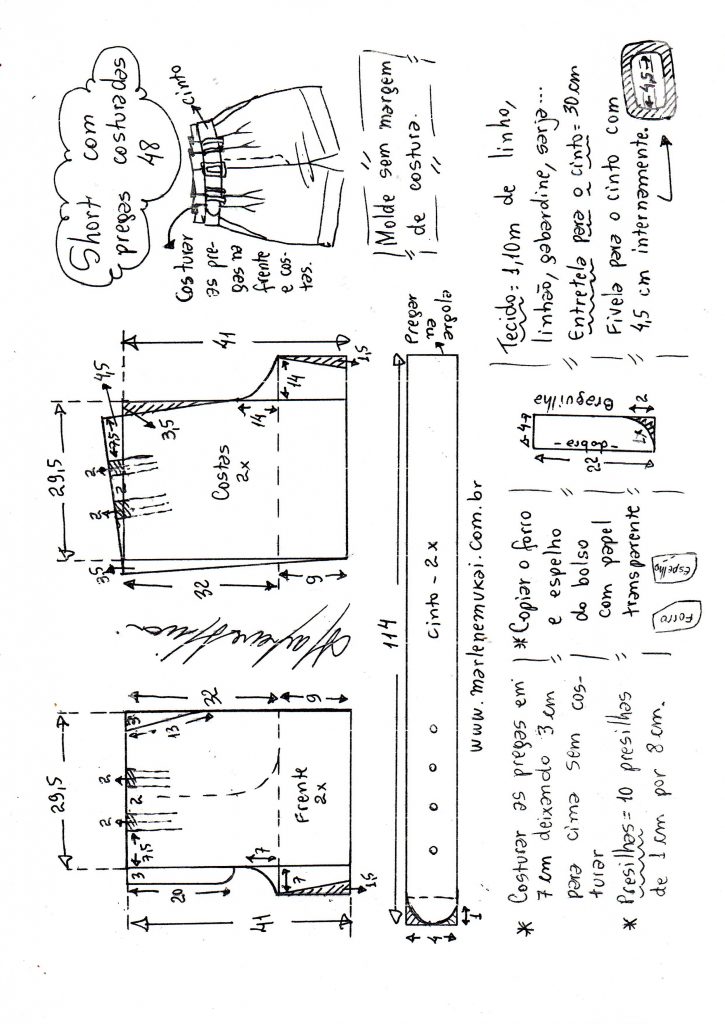 Short com
pregas costuradas
48
cinto
Costurar
as pre-
gas na
frente
e cos-
tas.
Molde sem margem
de costura.
29,5
2
2
2
7,5
3
3
13
20
32
9
7
7
1,5
41
Frente
2x
29,5
3,5
2
2
2
7,5
4,5
3,5
41
32
9
14
14
1,5
Costas
2x
114
Pregar
na
argola
cinto - 2x
4
1
www.marlenemukai.com.br
* Costurar as pregas em
7 cm deixando 3 cm
para cima sem cos-
turar
* Presilhas = 10 presilhas
de 1 cm por 8 cm.
* Copiar o forro
e espelho
do bolso
com papel
transparente
Forro
Espelho
4
22
dobra
1x
2
Braguilha
Tecido = 1,10m de linho,
linhão, gabardine, sarja...
Entretela para o cinto = 30 cm
Fivela para o cinto com
4,5 cm internamente.
4,5